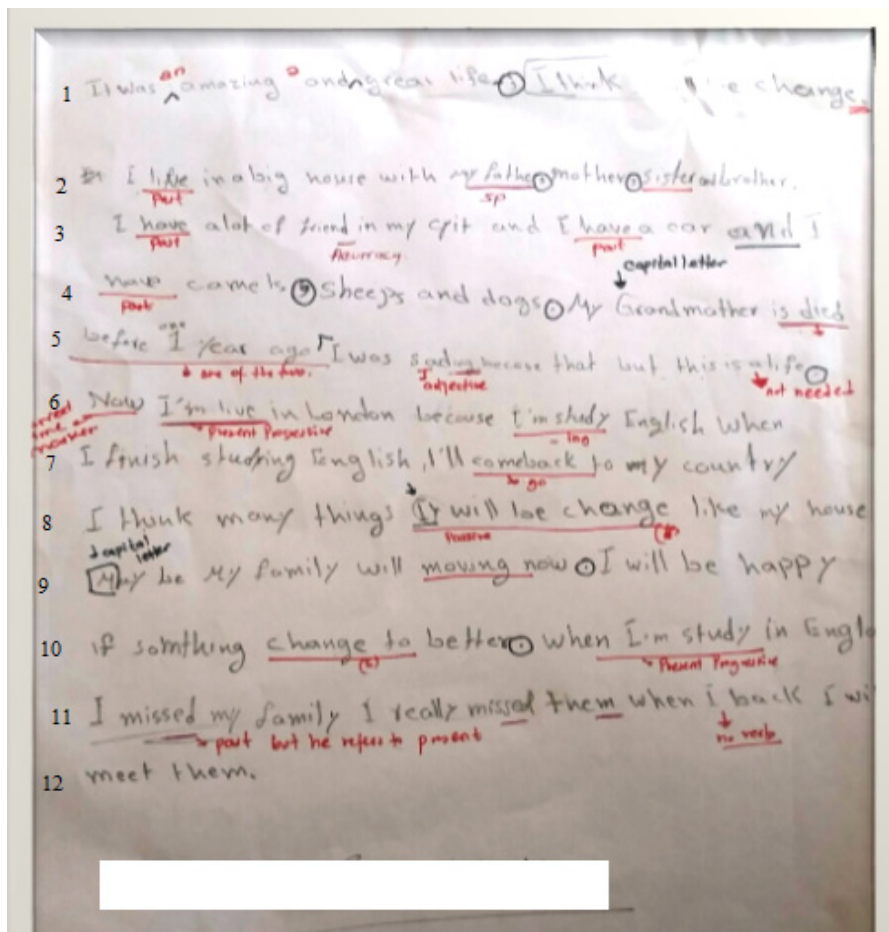 an a
1 It was amazing and great life, I think change.
2 I life in a big house with my father, mother, sister and brother.
Past sp
3 I have alot of friend in my and I have a car and I
Past Accuracy Past capital letter
4 have camels, sheeps and dogs. My Grandmather is died
Past
5 before 1 year ago I was because that but this is a life.
one of the two. adjective not needed
6 Now I'm live in London because I'm study English when
Present Progressive -ing
7 I finish studing English, I'll comeback to my country
go
8 I think many things It will be change like my house
capital letter Passive
9 May be My family will moving now. I will be happy
10 if somthing change to better. when I'm study in
(s) Present Progressive
11 I missed my family I really missed them when I back I
past but he refers to present no verb
12 meet them.